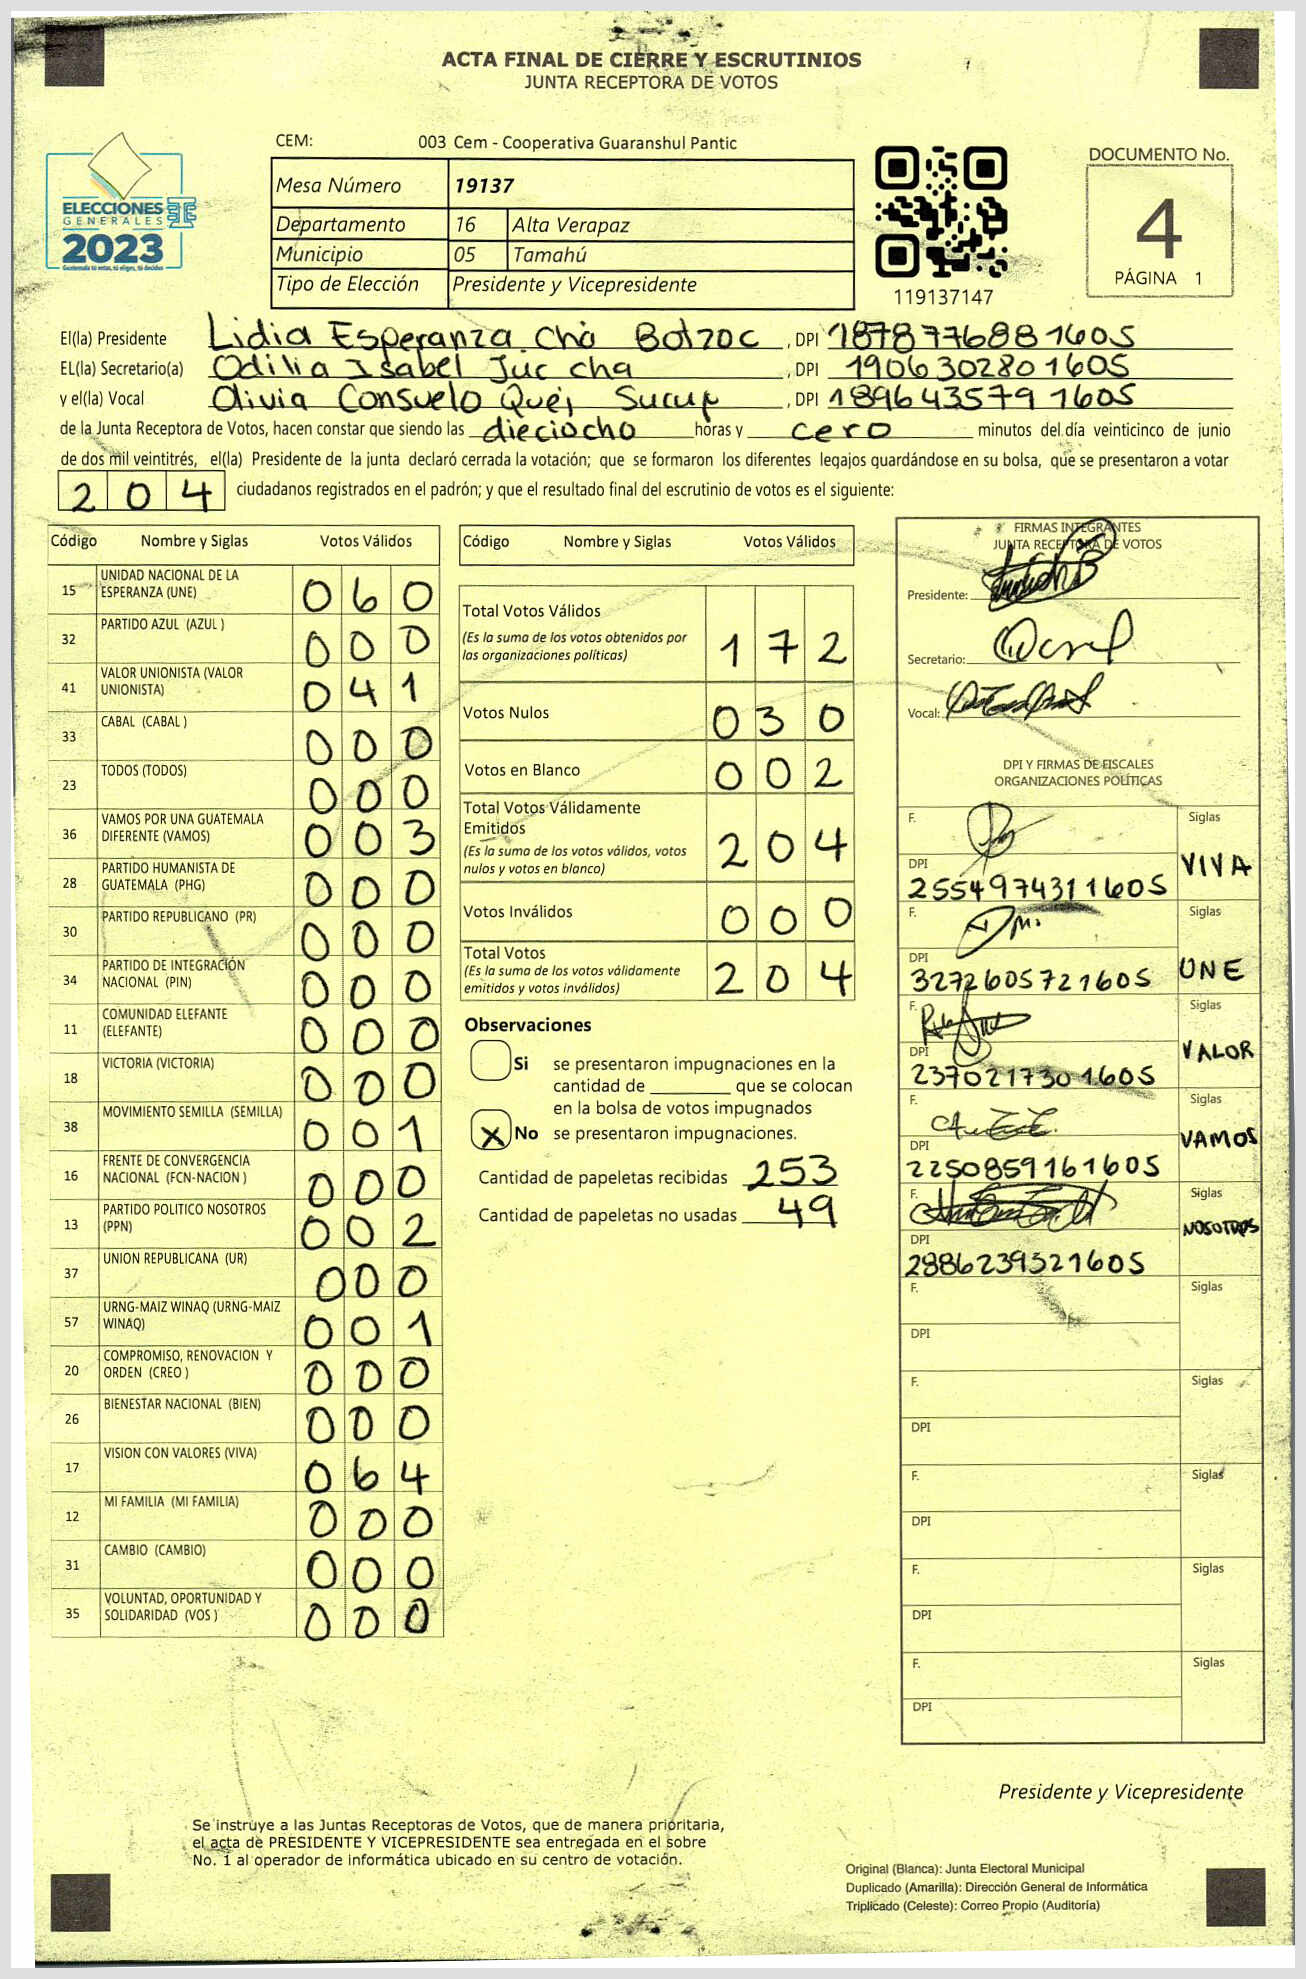 ACTA FINAL DE CIERRE Y ESCRUTINIOS
JUNTA RECEPTORA DE VOTOS
CEM: 003 Cem - Cooperativa Guaranshul Pantic
ELECCIONES
GENERALES
2023
Guatemala tú votas, tú eliges, tú decides
Mesa Número 19137
Departamento 16 Alta Verapaz
Municipio 05 Tamahú
Tipo de Elección Presidente y Vicepresidente
119137147
DOCUMENTO No.
4
PÁGINA 1
El(la) Presidente Lidia Esperanza Chò Botzoc, DPI 1878776881605
EL(la) Secretario(a) Odilia Isabel Juc cha, DPI 1906302801605
y el(la) Vocal Olivia Consuelo Quej Sucup, DPI 1896435791605
de la Junta Receptora de Votos, hacen constar que siendo las dieciocho horas y cero minutos del día veinticinco de junio
de dos mil veintitrés, el(la) Presidente de la junta declaró cerrada la votación; que se formaron los diferentes legajos guardándose en su bolsa, que se presentaron a votar
204 ciudadanos registrados en el padrón; y que el resultado final del escrutinio de votos es el siguiente:
Código Nombre y Siglas Votos Válidos
15 UNIDAD NACIONAL DE LA
ESPERANZA (UNE) 060
32 PARTIDO AZUL (AZUL ) 000
41 VALOR UNIONISTA (VALOR
UNIONISTA) 041
33 CABAL (CABAL ) 000
23 TODOS (TODOS) 000
36 VAMOS POR UNA GUATEMALA
DIFERENTE (VAMOS) 003
28 PARTIDO HUMANISTA DE
GUATEMALA (PHG) 000
30 PARTIDO REPUBLICANO (PR) 000
34 PARTIDO DE INTEGRACIÓN
NACIONAL (PIN) 000
11 COMUNIDAD ELEFANTE
(ELEFANTE) 000
18 VICTORIA (VICTORIA) 000
38 MOVIMIENTO SEMILLA (SEMILLA) 001
16 FRENTE DE CONVERGENCIA
NACIONAL (FCN-NACION ) 000
13 PARTIDO POLITICO NOSOTROS
(PPN) 002
37 UNION REPUBLICANA (UR) 000
57 URNG-MAIZ WINAQ (URNG-MAIZ
WINAQ) 001
20 COMPROMISO, RENOVACION Y
ORDEN (CREO ) 000
26 BIENESTAR NACIONAL (BIEN) 000
17 VISION CON VALORES (VIVA) 064
12 MI FAMILIA (MI FAMILIA) 000
31 CAMBIO (CAMBIO) 000
35 VOLUNTAD, OPORTUNIDAD Y
SOLIDARIDAD (VOS ) 000
Código Nombre y Siglas Votos Válidos
Total Votos Válidos
(Es la suma de los votos obtenidos por
las organizaciones políticas) 172
Votos Nulos 030
Votos en Blanco 002
Total Votos Válidamente
Emitidos
(Es la suma de los votos válidos, votos
nulos y votos en blanco) 204
Votos Inválidos 000
Total Votos
(Es la suma de los votos válidamente
emitidos y votos inválidos) 204
Observaciones
Si se presentaron impugnaciones en la
cantidad de ________ que se colocan
en la bolsa de votos impugnados
X No se presentaron impugnaciones.
Cantidad de papeletas recibidas 253
Cantidad de papeletas no usadas 49
FIRMAS INTEGRANTES
JUNTA RECEPTORA DE VOTOS
Presidente:
Secretario:
Vocal:
DPI Y FIRMAS DE FISCALES
ORGANIZACIONES POLÍTICAS
F. Siglas
VIVA
DPI
2554974311605
F. Siglas
UNE
DPI
3272605721605
F. Siglas
VALOR
DPI
2370217301605
F. Siglas
VAMOS
DPI
2250859161605
F. Siglas
NOSOTROS
DPI
2886239321605
F. Siglas
DPI
F. Siglas
DPI
F. Siglas
DPI
F. Siglas
DPI
F. Siglas
DPI
Presidente y Vicepresidente
Se instruye a las Juntas Receptoras de Votos, que de manera prioritaria,
el acta de PRESIDENTE Y VICEPRESIDENTE sea entregada en el sobre
No. 1 al operador de informática ubicado en su centro de votación.
Original (Blanca): Junta Electoral Municipal
Duplicado (Amarilla): Dirección General de Informática
Triplicado (Celeste): Correo Propio (Auditoría)